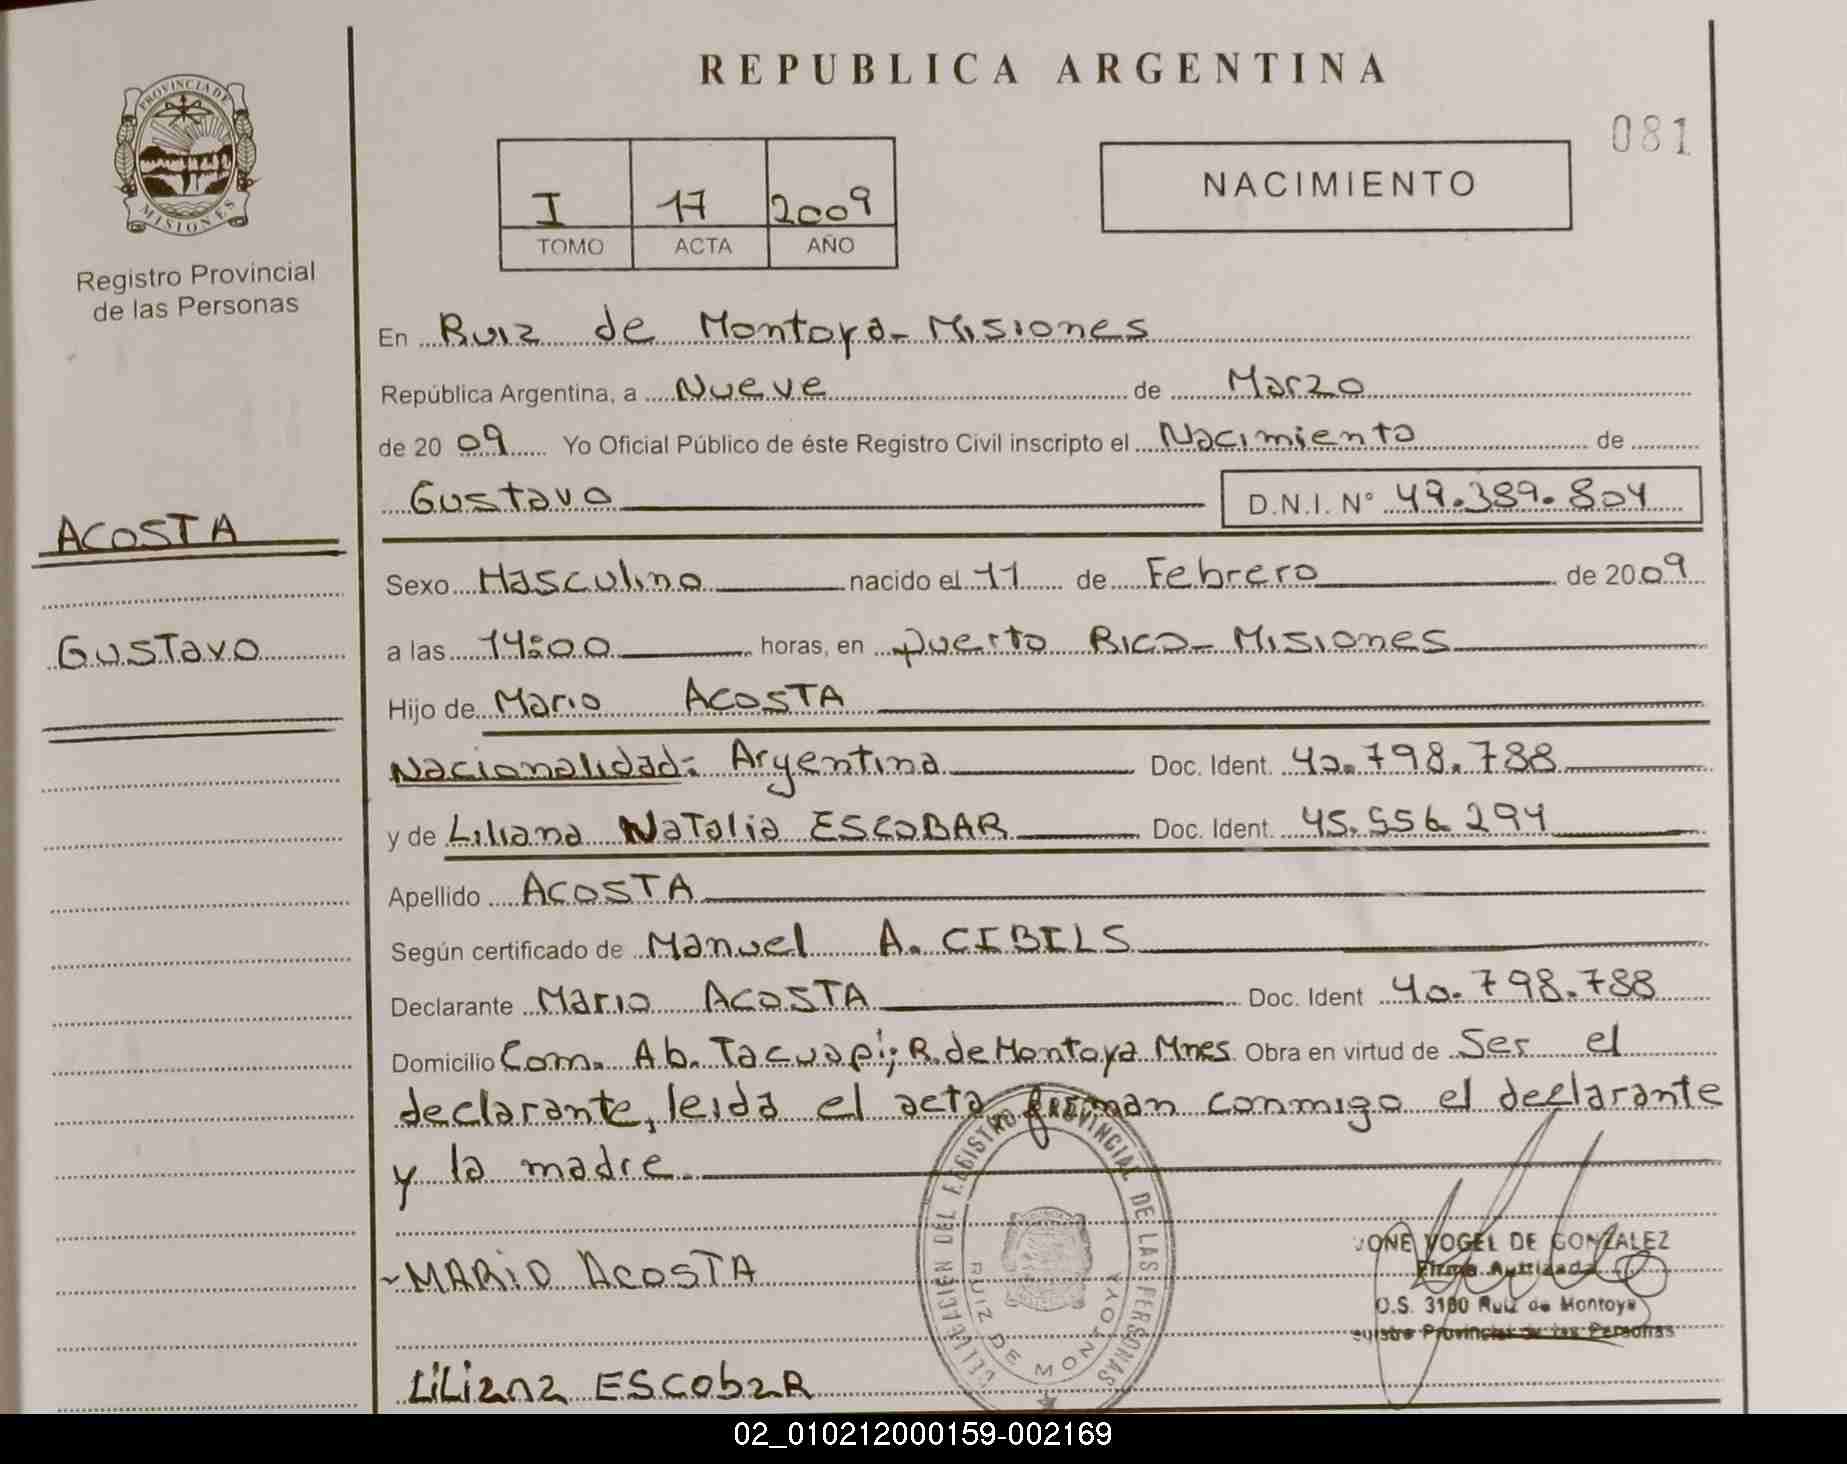 REPUBLICA ARGENTINA
081
PROVINCIA DE
MISIONES
Registro Provincial
de las Personas
I 17 2009
TOMO ACTA AÑO
NACIMIENTO
En Ruiz de Montoya - Misiones
República Argentina, a Nueve de Marzo
de 20 09 Yo Oficial Público de éste Registro Civil inscripto el Nacimiento de
Gustavo D.N.I. N° 49.389.804
ACOSTA
Gustavo
Sexo Masculino nacido el 11 de Febrero de 2009
a las 14:00 horas, en Puerto Rico - Misiones
Hijo de Mario ACOSTA
Nacionalidad: Argentina Doc. Ident. 40.798.788
y de Liliana Natalia ESCOBAR Doc. Ident. 45.556.294
Apellido ACOSTA
Según certificado de Manuel A. CIBILS
Declarante Mario ACOSTA Doc. Ident 40.798.788
Domicilio Com. Ab. Tacuapí; R. de Montoya Mnes. Obra en virtud de Ser el
declarante, leida el acta firman conmigo el declarante
y la madre
MARiO ACOSTA
LiLiana ESCobaR
DELEGACION DEL REGISTRO PROVINCIAL DE LAS PERSONAS
RUIZ DE MONTOYA
VONE VOGEL DE GONZALEZ
Firma Autrizada
O.S. 3180 Ruiz de Montoya
Provincial de las Personas
02_010212000159-002169